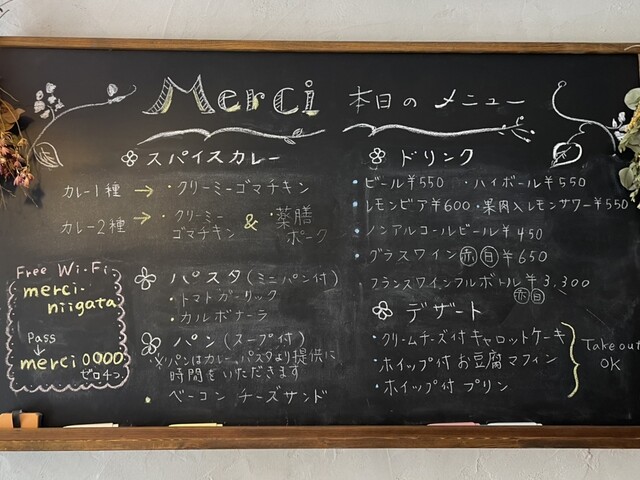 Merci 本日の メニュー
❀ スパイスカレー
カレー1種 → ・クリーミーゴマチキン
カレー2種 → ・クリーミーゴマチキン & ・薬膳ポーク
❀ パスタ(ミニパン付)
・トマトガーリック
・カルボナーラ
❀ パン(スープ付)
※パンはカレー、パスタより提供に
時間をいただきます
・ベーコン チーズサンド
Free Wi-Fi
merci-
niigata
Pass
↓
merci0000
ゼロ4つ
❀ ドリンク
・ビール¥550 ・ハイボール¥550
・レモンビア¥600 ・果肉入レモンサワー¥550
・ノンアルコールビール¥450
・グラスワイン(赤)(白)¥650
フランスワインフルボトル¥3,300
(赤)(白)
❀ デザート
・クリームチーズ付キャロットケーキ
・ホイップ付お豆腐マフィン
・ホイップ付プリン
Take out
OK